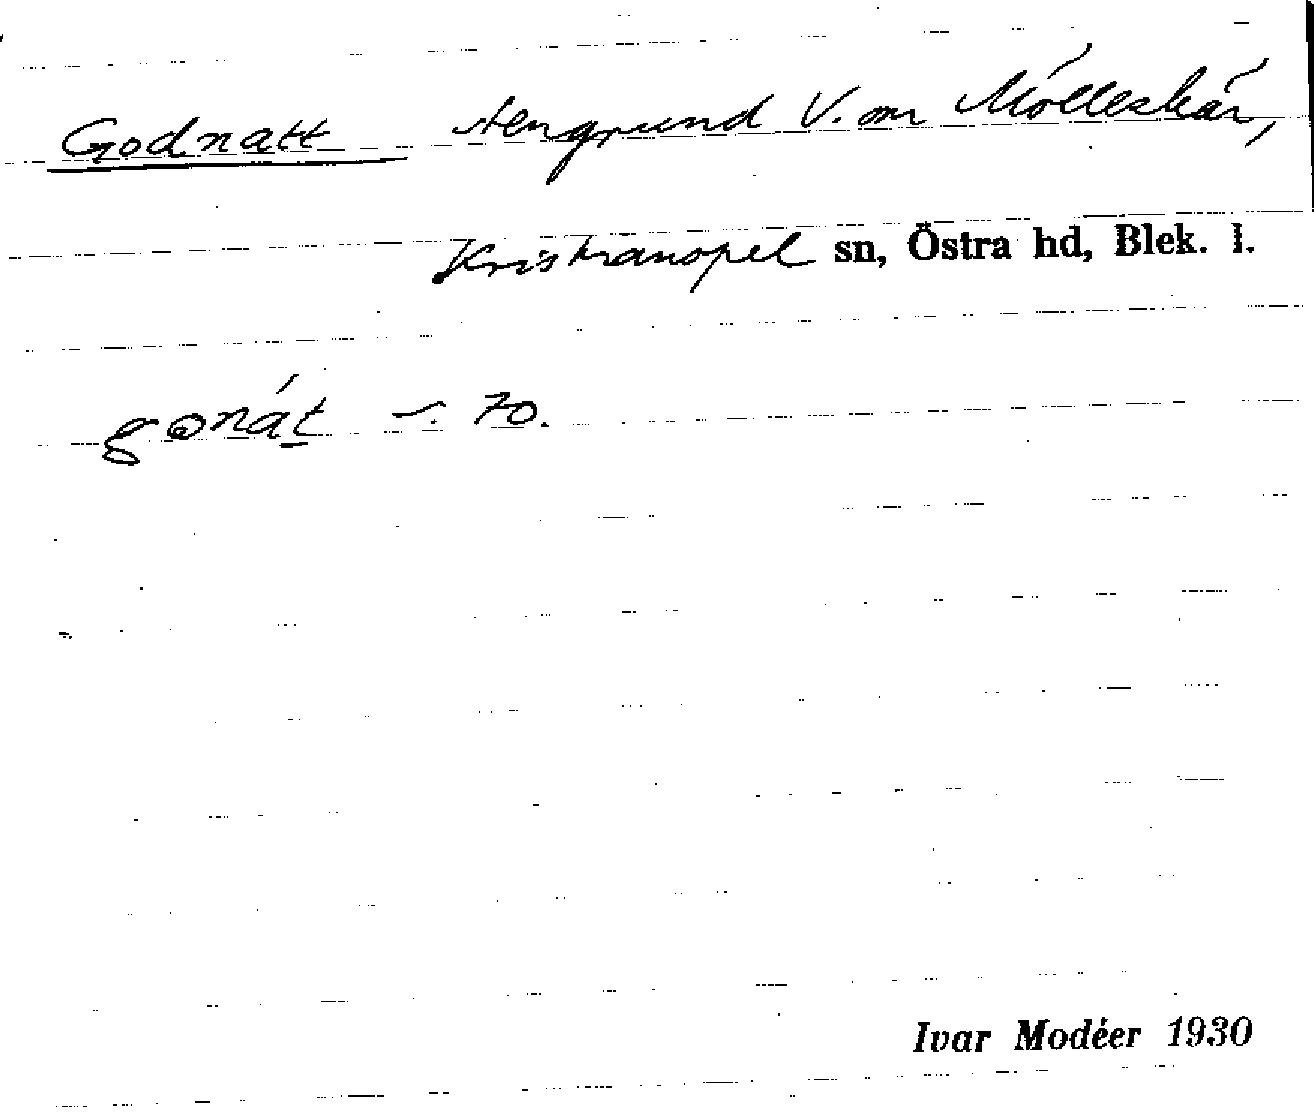 Godnatt stengrund V. om Mölleskär,
Kristianopel sn, Östra hd, Blek. l.
gonát 70.
Ivar Modéer 1930